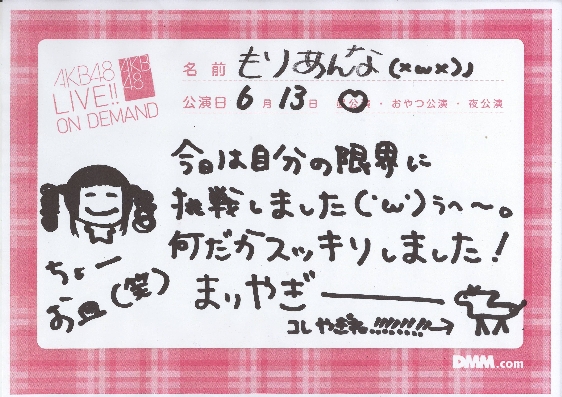 AKB48
LIVE!!
ON DEMAND
AKB
48
名前 もりあんな(×ω×)」
公演日 6月13日 ・おやつ公演・夜公演
今日は自分の限界に
挑戦しました(´ω`)うへ〜。
何だかスッキリしました!
まりやぎ
ちょー
お皿(笑)
コレやぎね!!!!!!!!→
DMM.com